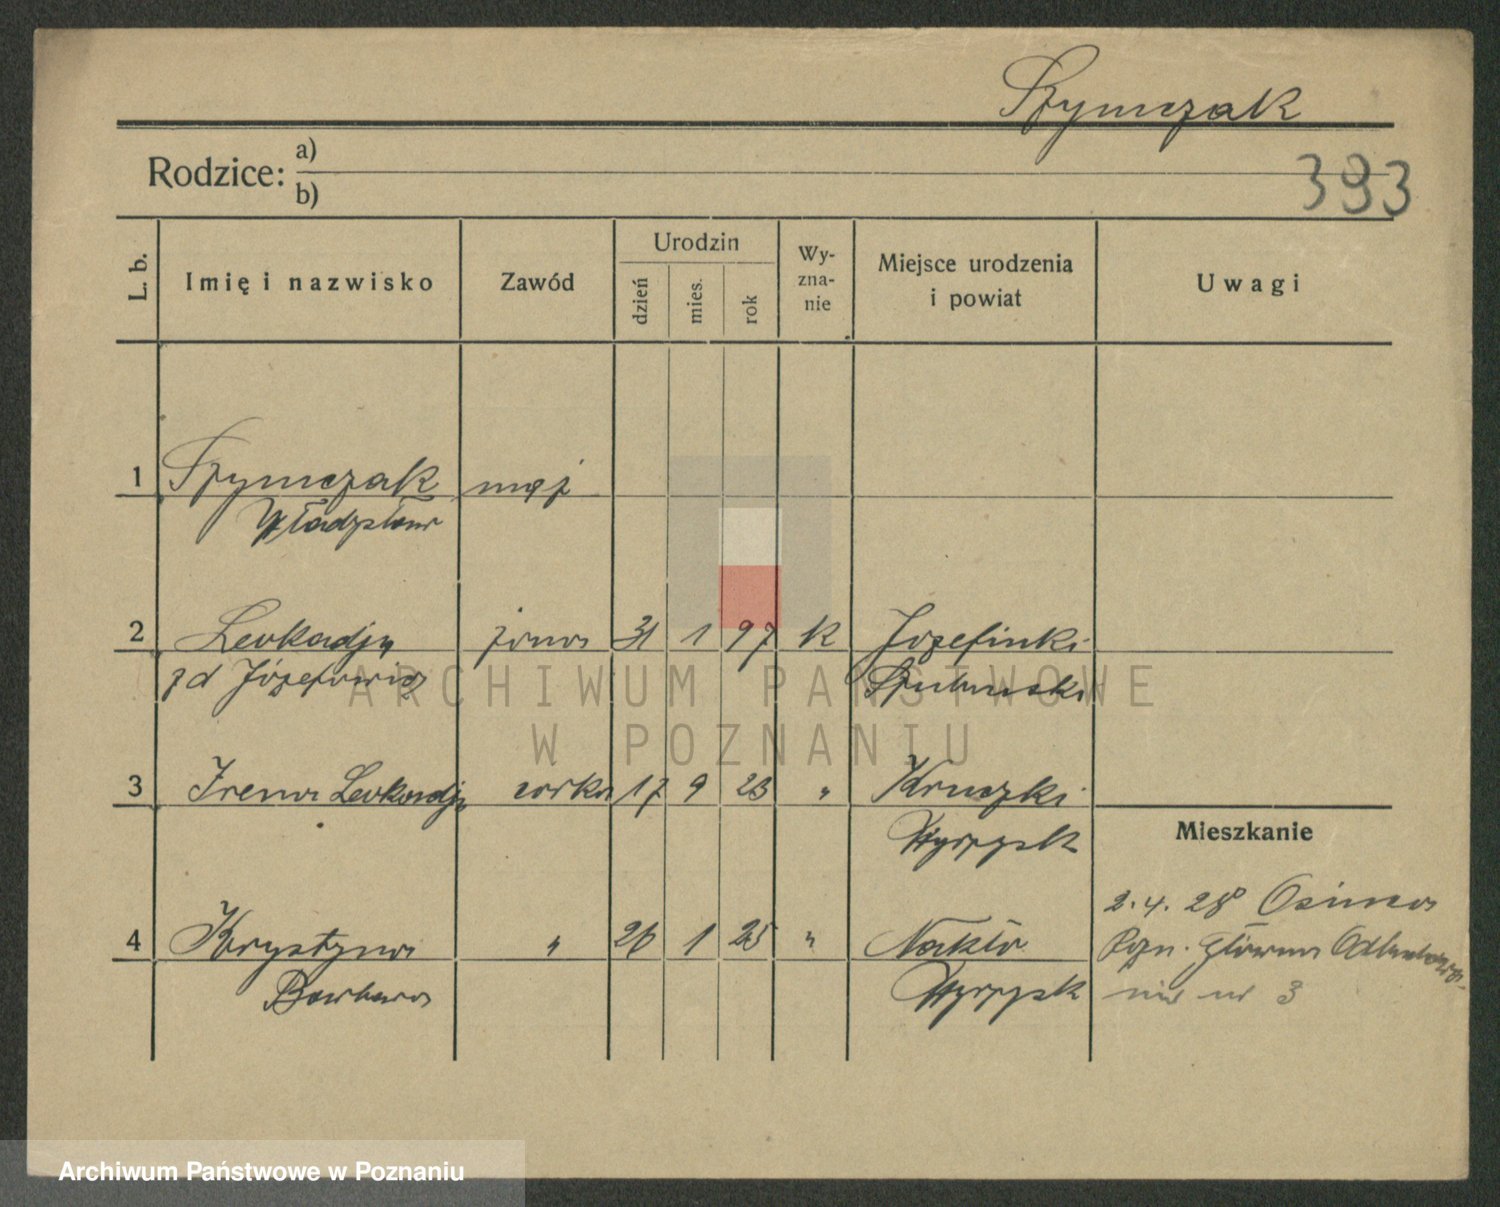 Szymczak
Rodzice: a)
b)
393
L. b.
Imię i nazwisko
Zawód
Urodzin
dzień
mies.
rok
Wy-
zna-
nie
Miejsce urodzenia
i powiat
Uwagi
1 Szymczak mąż
Władysław
2 Leokadja żona 31 1 97 k Józefinki
zd Józefowicz Szubinski
3 Irena Leokadja corka 17 9 23 " Kruszki
Wyrzysk
Mieszkanie
2.4.28 Osinca
4 Krystyna " 26 1 25 " Nakło
Pozn. główna
Barbara Wyrzysk
nia nr 3
ARCHIWUM PAŃSTWOWE
W POZNANIU
Archiwum Państwowe w Poznaniu